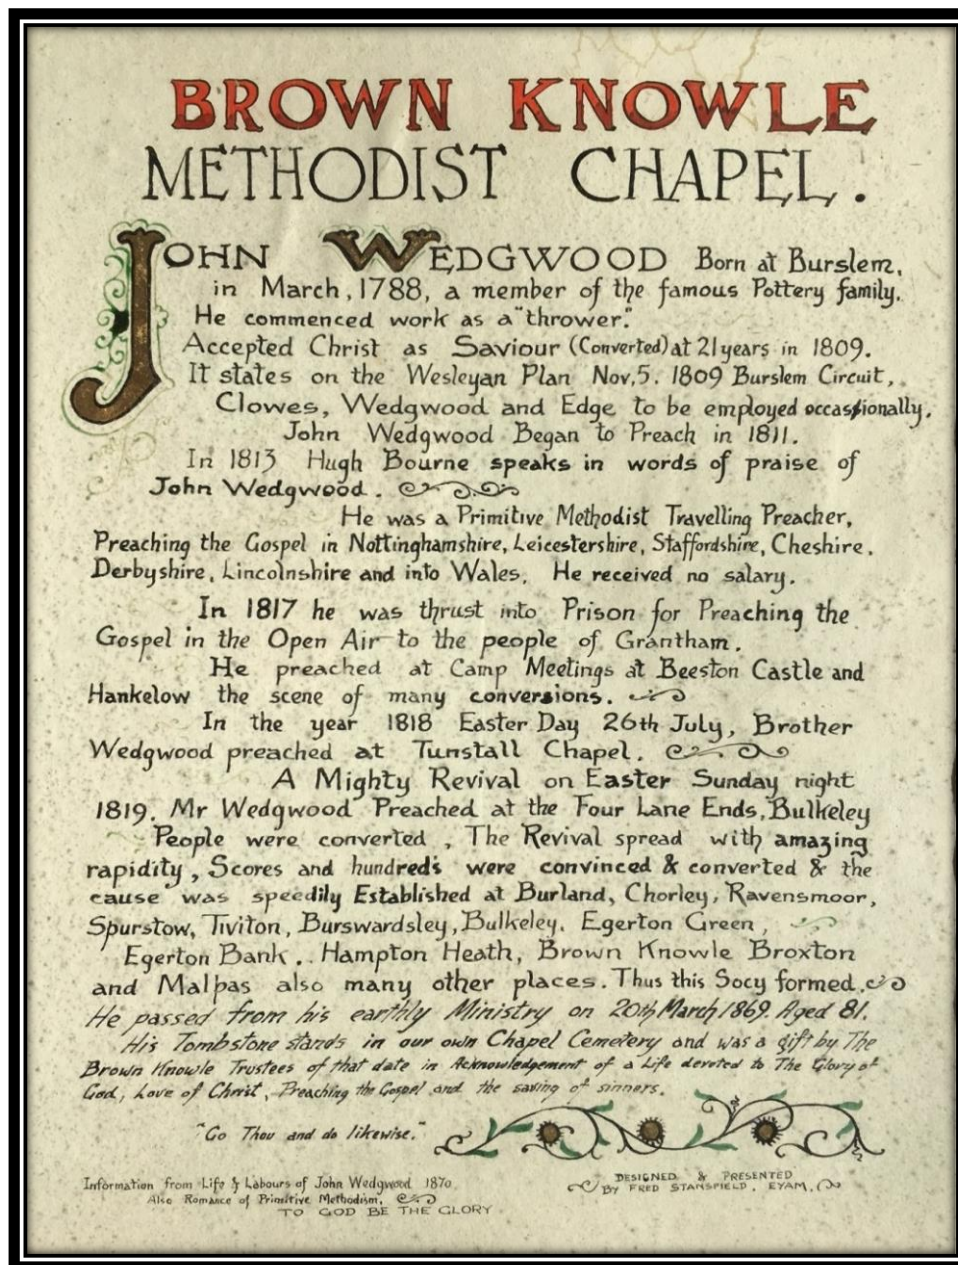 BROWN KNOWLE
METHODIST CHAPEL.
JOHN WEDGWOOD Born at Burslem,
in March, 1788, a member of the famous Pottery family.
He commenced work as a "thrower."
Accepted Christ as Saviour (Converted) at 21 years in 1809.
It states on the Wesleyan Plan Nov, 5. 1809 Burslem Circuit,
Clowes, Wedgwood and Edge to be employed occassionally.
John Wedgwood Began to Preach in 1811.
In 1813 Hugh Bourne speaks in words of praise of
John Wedgwood.
He was a Primitive Methodist Travelling Preacher,
Preaching the Gospel in Nottinghamshire, Leicestershire, Staffordshire, Cheshire.
Derbyshire, Lincolnshire and into Wales. He received no salary.
In 1817 he was thrust into Prison for Preaching the
Gospel in the Open Air to the people of Grantham.
He preached at Camp Meetings at Beeston Castle and
Hankelow the scene of many conversions.
In the year 1818 Easter Day 26th July, Brother
Wedgwood preached at Tunstall Chapel.
A Mighty Revival on Easter Sunday night
1819. Mr Wedgwood Preached at the Four Lane Ends, Bulkeley
People were converted, The Revival spread with amazing
rapidity, Scores and hundreds were convinced & converted & the
cause was speedily Established at Burland, Chorley, Ravensmoor,
Spurstow, Tiviton, Burswardsley, Bulkeley. Egerton Green,
Egerton Bank.. Hampton Heath, Brown Knowle Broxton
and Malpas also many other places. Thus this Socy formed.
He passed from his earthly Ministry on 20th March 1869. Aged 81.
His Tombstone stands in our own Chapel Cemetery and was a gift by The
Brown Knowle Trustees of that date in Acknowledgement of a Life devoted to The Glory of
God, Love of Christ, Preaching the Gospel and the saving of sinners.
"Go Thou and do likewise."
Information from Life & Labours of John Wedgwood 1870
Also Romance of Primitive Methodism.
TO GOD BE THE GLORY
DESIGNED & PRESENTED
BY FRED STANSFIELD, EYAM.